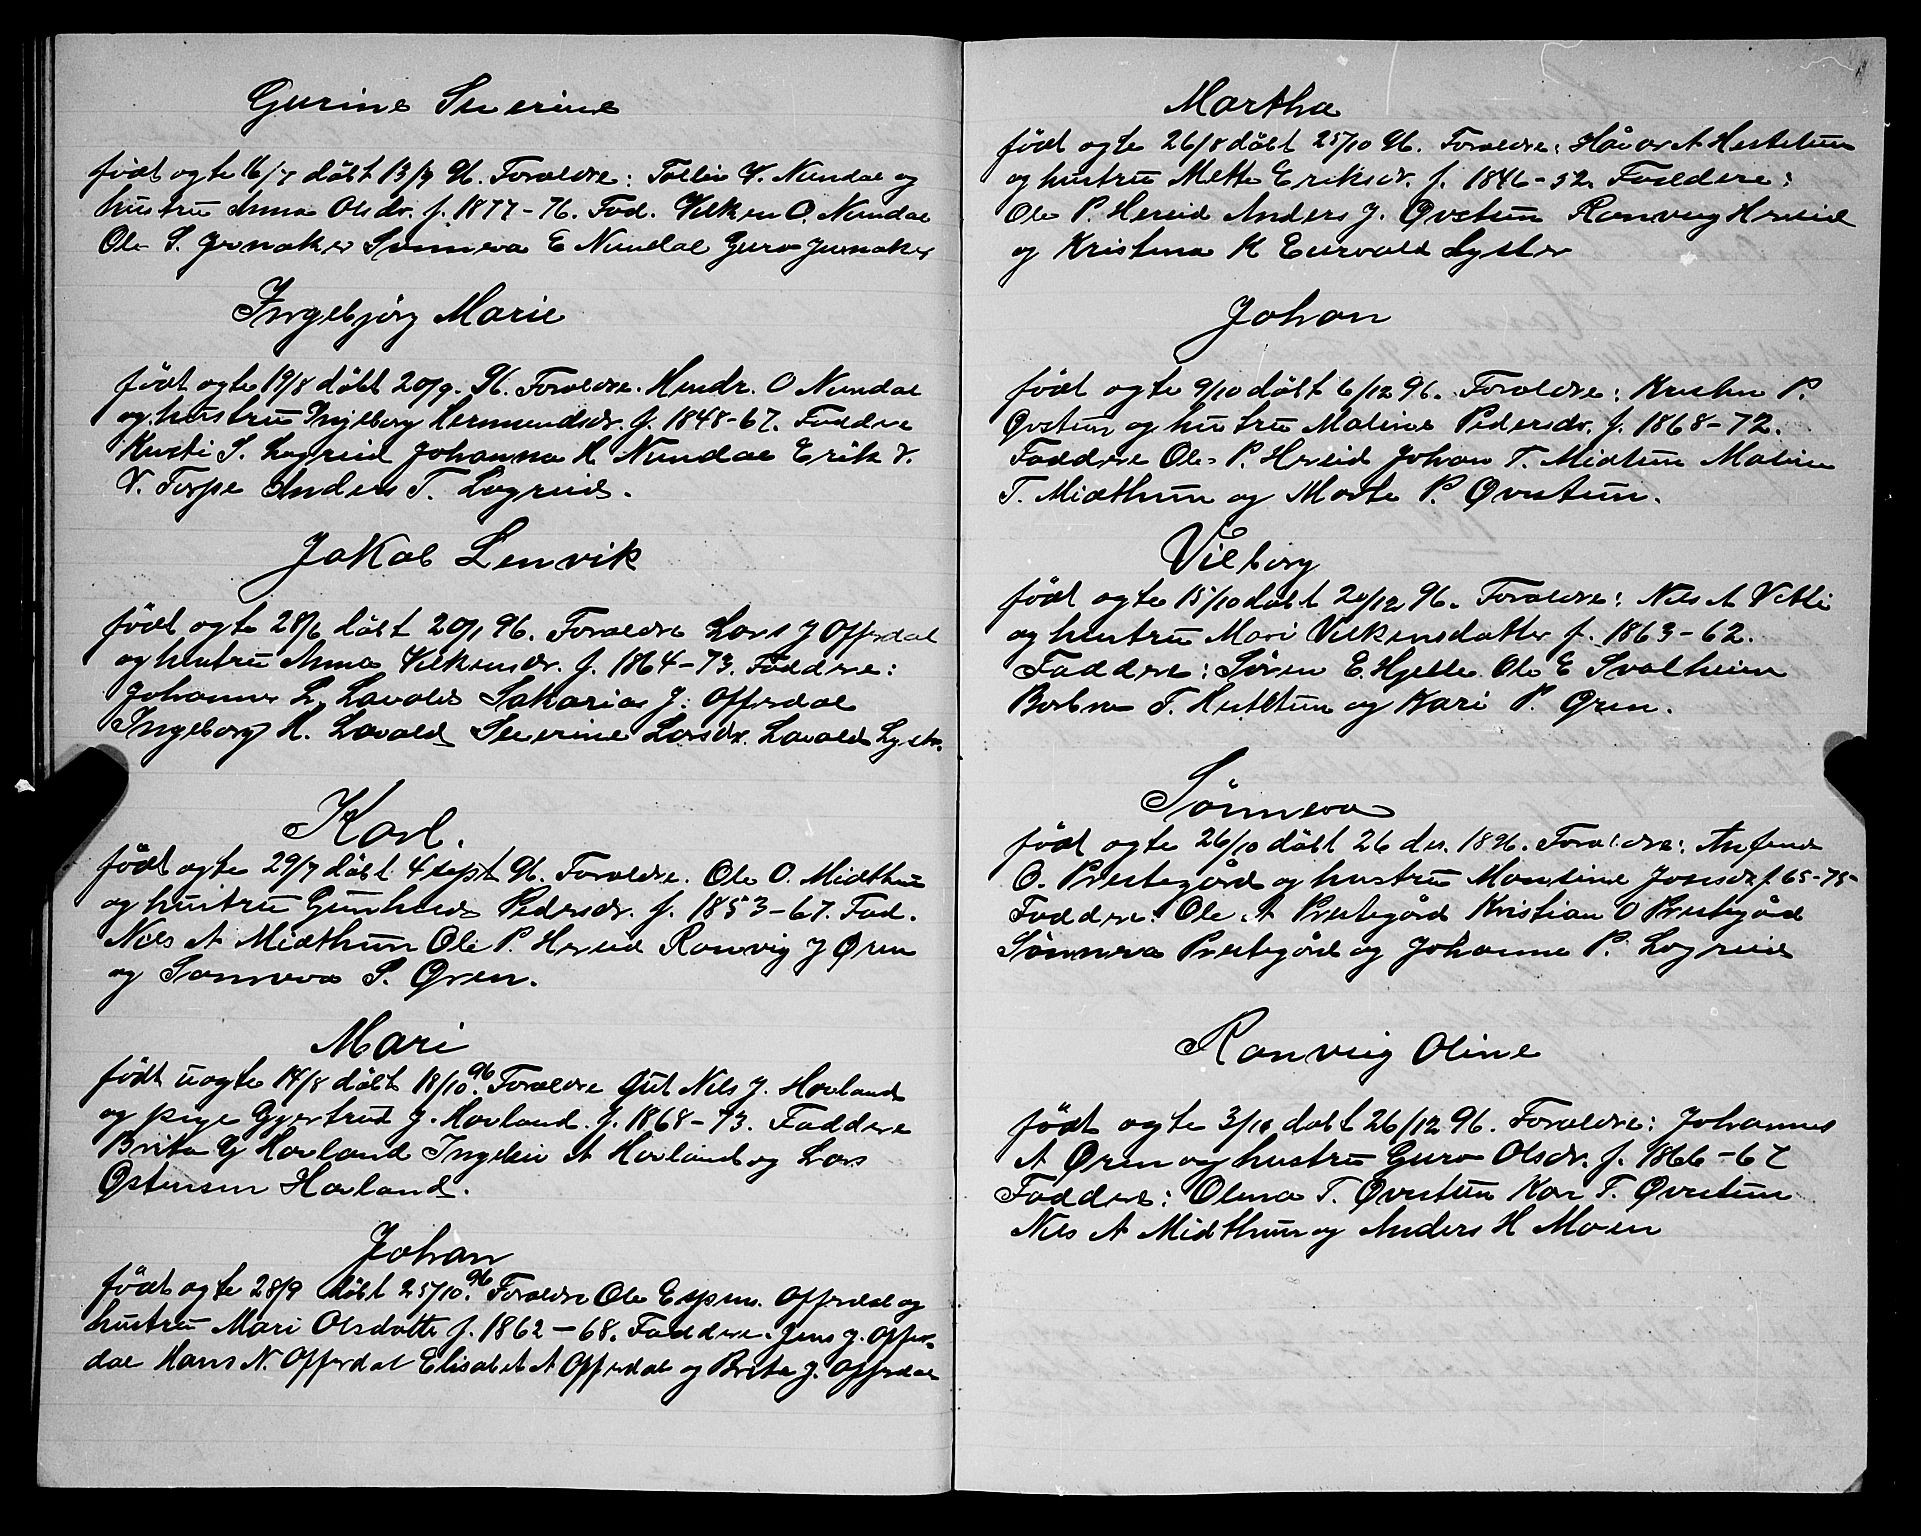 Gurine Severine
født egte 16/7 døbt 13/9 96. Foreldre: Tollev V. Nundal og
hustru Anna Olsdr. f. 1877-76. Fad. Vilken O. Nundal
Ole S. Sunneva E Nundal Guro
Ingebjörg Marie
födt egte 19/8 döbt 20/9. 96. Foreldre. Hendr. O Nundal
og hustru Ingeborg Hermundsdr. f. 1848-67. Faddre
S. Lægreid Johanna H Nundal Erik V.
V. Torpe Anders T. Lægreid.
Jakob Lenvik
födt egte 28/6 döbt 20/9 96. Foreldre Lars J Offerdal
og hustru Anna Vilkensdr. f. 1864-73. Faddre:
Johannes L. Lavold Sakarias J. Offerdal
Ingeborg H. Lavold Severine Larsdr. Lavold Lyster
Karl.
födt egte 29/7 döbt 4 sept 96. Foreldre. Ole O. Midthun
og hustru Gunhild Pedersdr. f. 1853-67. Fad.
Nils A Midthun Ole P. Hereid Ranvig J Øren
og Sønneva S. Øren.
Mari
födt uegte 14/8 döbt 18/10 96. Foreldre Gut Nils J. Hovland
og pige Gjertrud J. Hovland. f. 1868-73. Faddere
Brita G Hovland Ingeleiv A Hovland og Lars
Østensen Hovland.
Johan
födt egte 28/9 döbt 25/10 96. Foreldre Ole Espens. Offerdal og
hustru Mari Olsdatter f. 1862-68. Faddere. Jens J. Offer-
dal Hans N. Offerdal Elisabet A Offerdal og Brita J. Offerdal
Martha
födt egte 26/8 döbt 25/10 96. Foreldre: Håvar A Hestetun
og hustru Mette Eriksdr. f. 1846-52. Faddere:
Ole P. Hereid Anders J. Øvstun Ranveig Hereid
og Kristina K Lyster
Johan
födt egte 9/10 döbt 6/12 96. Foreldre: P.
Øvstun og hustru Maline Pedersdr. f. 1868-72.
Faddere Ole P. Hereid Johan T. Midtun Maline
T. Midthun og Marte P. Øvstun.
Vilborg
födt egte 15/10 döbt 20/12 96. Foreldre: Nils A Vetti
og hustru Mari Vilkensdatter f. 1863-62.
Faddere: Søren E. Hjelle Ole E Svalheim
T. Hestetun og Kari P. Øren.
Sönneva
födt egte 26/10 döbt 26 des. 1896. Foreldre: Anfind
O. Prestegård og hustru Monsine Jonsdr f. 65-75
Faddere: Ole A Prestegård Kristian O Prestegård
Sønneva Prestegård og Johanne P. Lægreid
Ranveig Oline
födt egte 3/10 döbt 26/12 96. Foreldre: Johannes
A Øren og hustru Guro Olsdr. f. 1866-67
Faddere: Olina T. Øvstun Kari T. Øvstun
Nils A Midthun og Anders H Moen